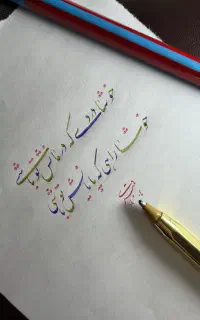 خوشا دردی که درمانش تو باشی
خوشا راهی که پایانش تو باشی